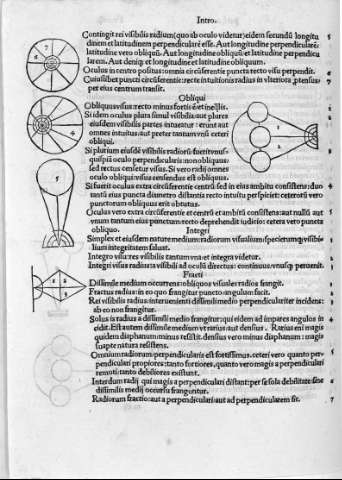 Intro.
Contingit rei visibilis radium (quo ab oculo videtur) eidem secundũ longitu 5
dinem et latitudinem perpendicularẽ esse. Aut longitudine perpendicularẽ:
latitudine vero obliquũ. Aut longitudine obliquũ et latitudine perpendicu
larem. Aut deniq et longitudine et latitudine obliquum.
Oculus in centro positus: omnia circũferẽtie puncta recto visu perpendit. 6
Cuiuslibet puncti circũferẽtie: recte intuitionis radius in vlteriora ptensus 7
per eius centrum transit.
Obliqui
Obliquus visus: recto minus fortis
Si idem oculus plura simul visibilia: aut plures
eiusdem visibilis partes intueatur: erunt aut
omnes intuitus: aut preter tantum vnũ ceteri
obliqui.
Si plurium eiusdẽ visibilis radiorũ fuerit vnus
quispiã oculo perpendicularis: non obliquus
sed rectus censetur visus. Si vero radij omnes
oculo obliqui: visus censendus est obliquus.
Si fuerit oculus extra circũferentie centrũ sed in eius ambitu consistens: duo 4
tantũ eius puncta diametro distantia recto intuitu perspiciet: ceterorũ vero
punctorum obliquus erit obtutus.
Oculus vero extra circũferentie et centrũ et ambitũ consistens: aut nullũ aut 5
vnum tantum eius punctum recto deprehendit iudicio: cetera vero puncta
obliquo.
Integri
Simplex et eiusdem nature medium: radiorum visualium specierumq visibi
lium integritatem saluat.
Integro visu: res visibilis tantum vna et integra videtur. 2
Integri visus radius a re visibili ad oculũ directus: continuus vnusq peruenit. 3
Fracti
Dissimile medium occurrens: obliquos visuales radios frangit.
Fractus radius: in eo quo frangitur puncto: angulum facit. 2
Rei visibilis radius: interuenienti dissimili medio perpendiculariter incidens: 3
ab eo non frangitur.
Solus is radius a dissimili medio frangitur: qui eidem ad impares angulos in 4
cidit. Est autem dissimile medium vt rarius aut densius. Rarius eni magis
quidem diaphanum: minus resistit. densius vero minus diaphanum: magis
suapte natura resistens.
Omnium radiorum perpendicularis est fortissimus. ceteri vero quanto per 5
pendiculari propiores: tanto fortiores, quanto vero magis a perpendiculari
remoti: tanto debiliores existunt.
Interdum radij qui magis a perpendiculari distant: per se sola debilitate sine 6
dissimilis medij occursu franguntur.
Radiorum fractio: aut a perpendiculari: aut ad perpendicularem fit. 7